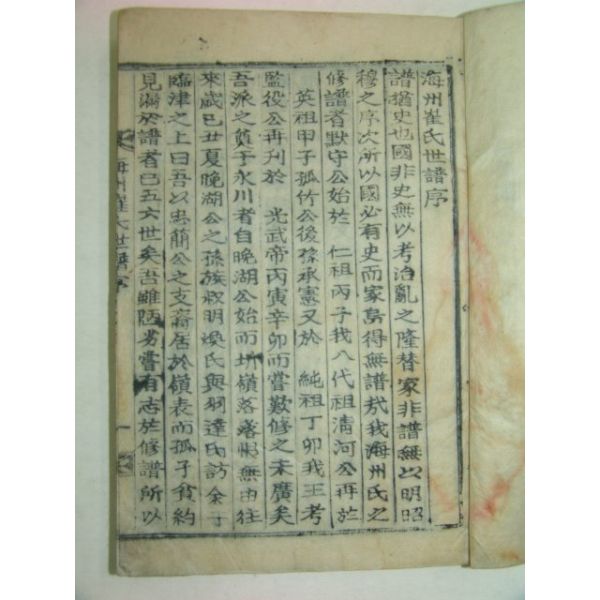 海州崔氏世譜序
譜猶史也國非史無以考治亂之隆替家非譜無以明昭
穆之序次所以國必有史而家烏得無譜哉我海州氏之
修譜者默守公始於 仁祖丙子我八代祖淸河公再於
英祖甲子孤竹公後孫承憲又於 純祖丁卯我王考
監役公再刊於 光武帝丙寅辛卯而嘗歎修之未廣矣
吾派之貧于永川者自晩湖公始而圻嶺落落悵無由往
來歲己丑夏晩湖公之孫族叔明煥氏與羽達氏訪余于
臨津之上曰吾以忠簡公之支裔居於嶺表而孤子貧約
見漏於譜者已五六世矣吾雖陋劣嘗有志於修譜所以
海州崔氏世譜序
一